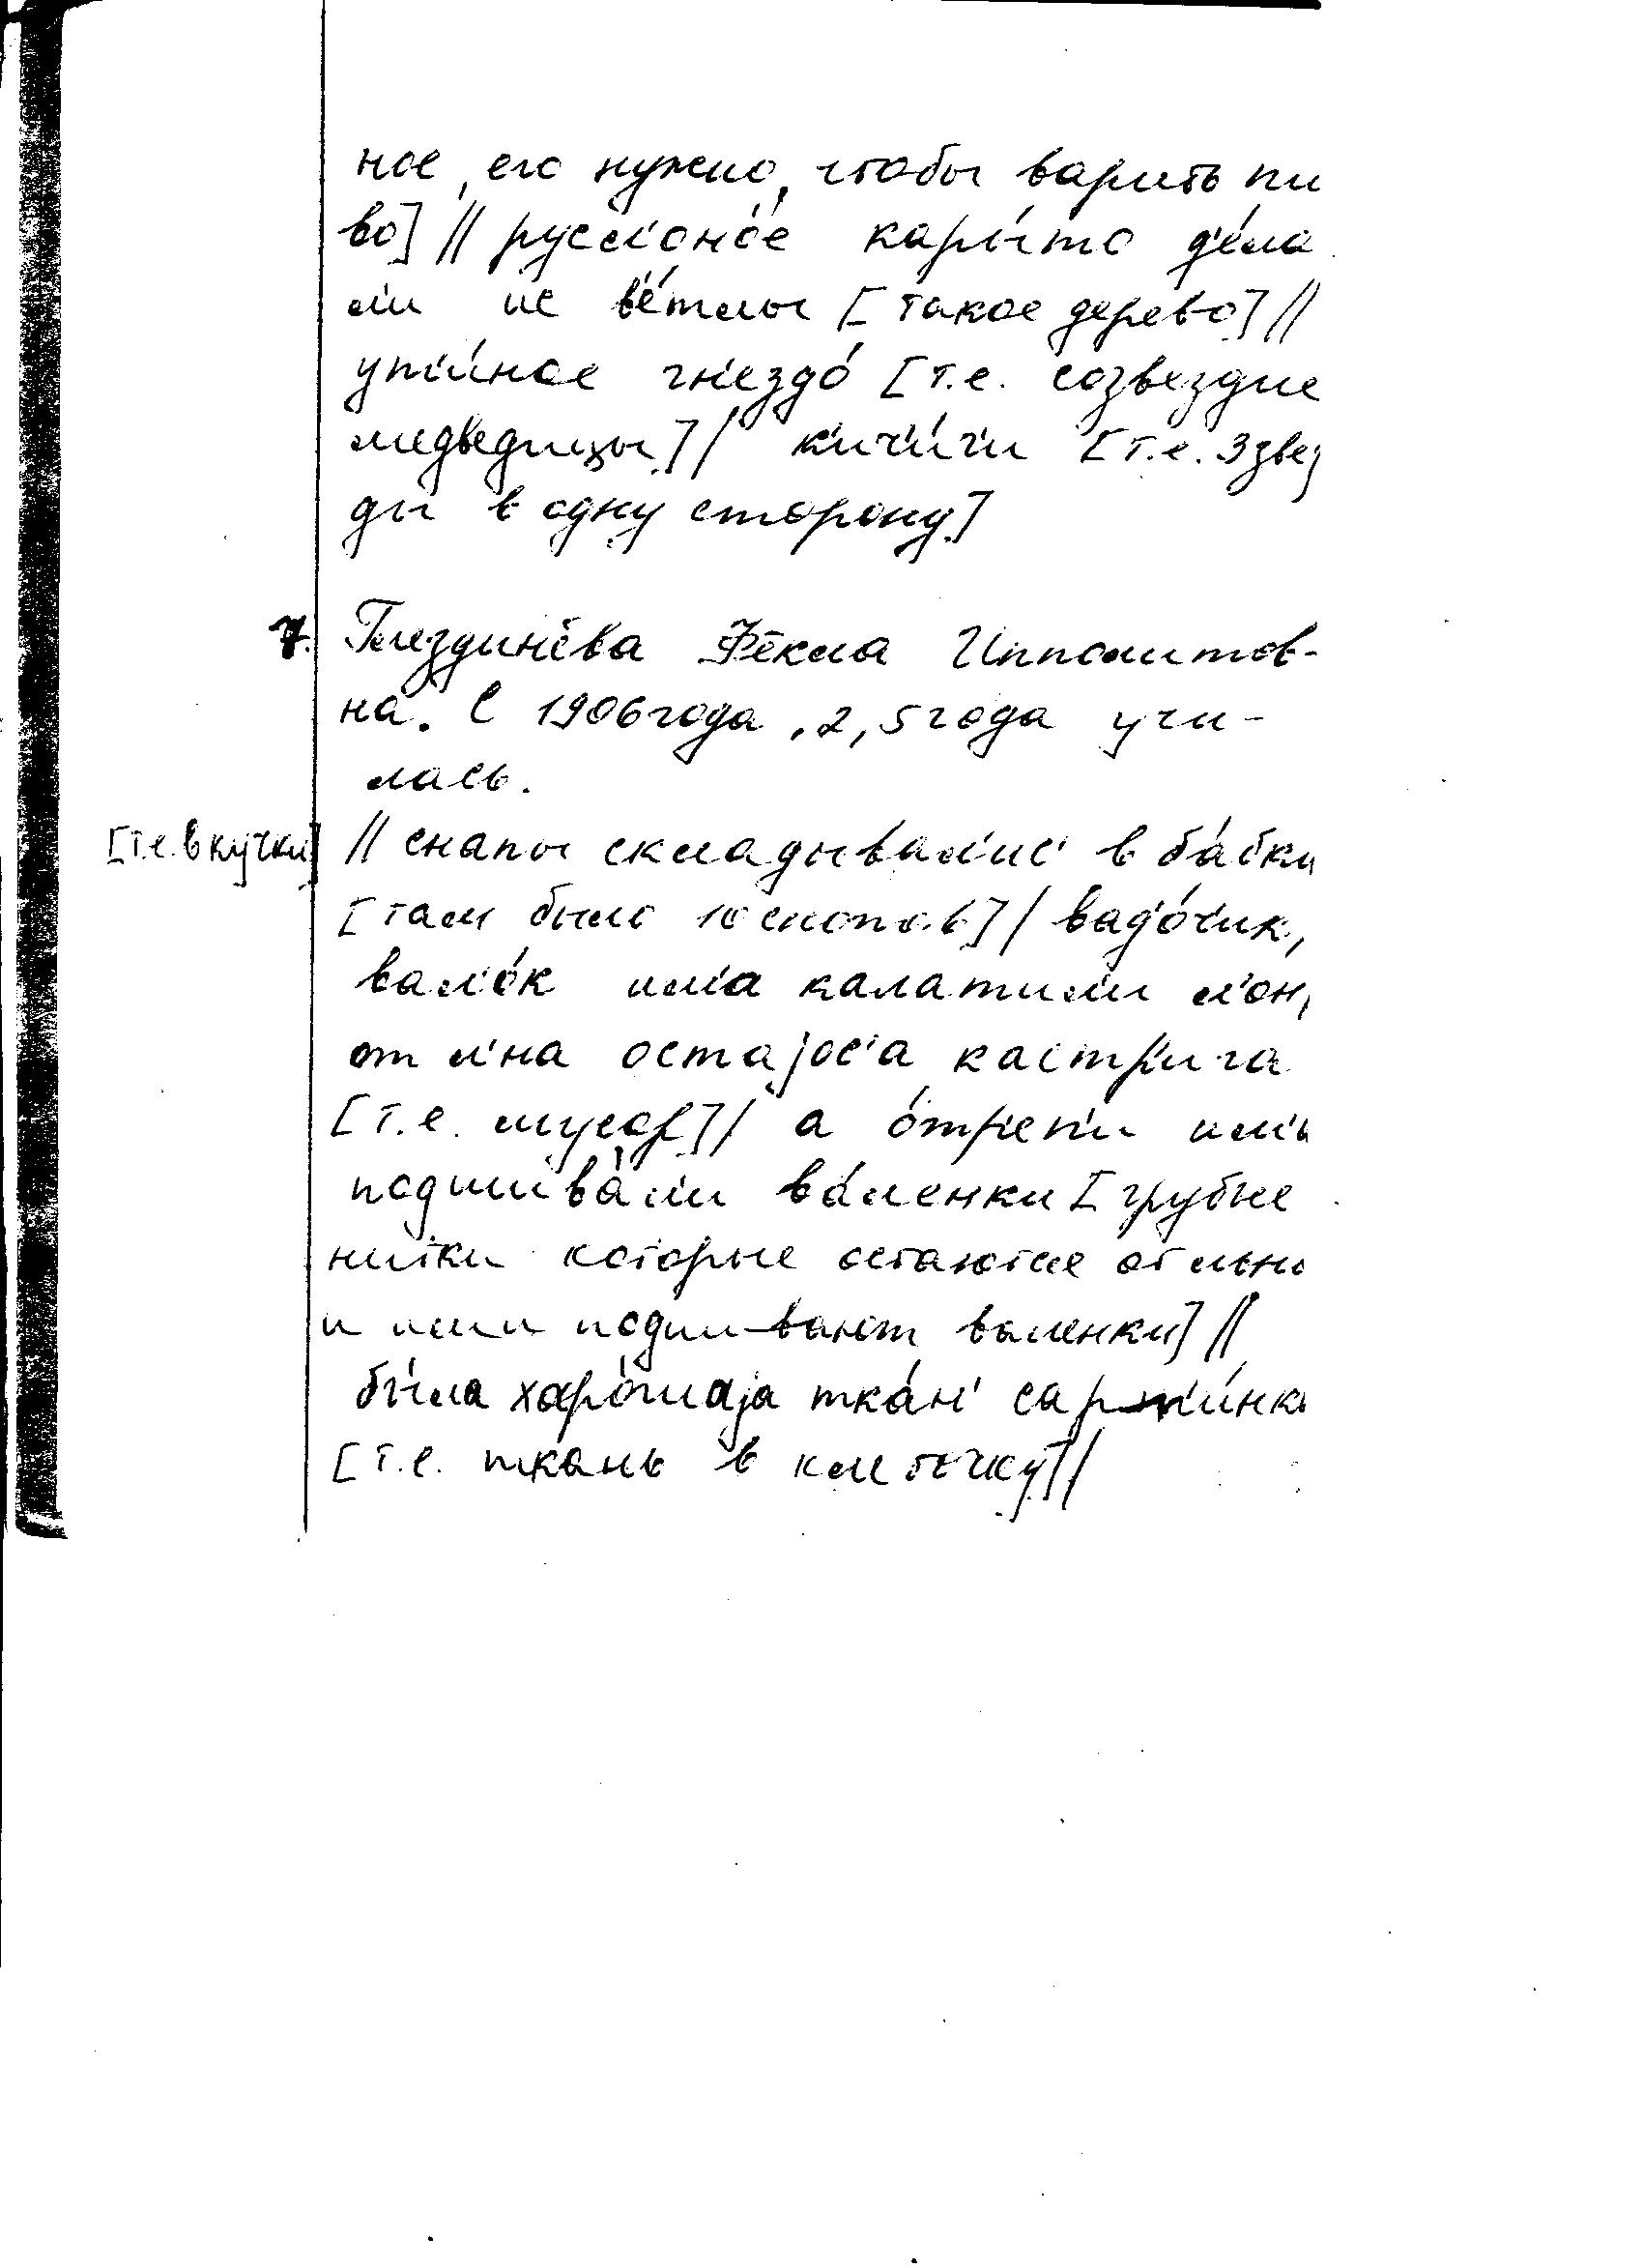 ное, его нужно, чтобы варить пи
во] // русл'оно́е кары́то д'е́ла
л'и ис в'е́тлы [такое дерево] //
ут'и́ное гн'ездо́ [т.е. созвездие
медведицы] / к'ич'и́г'и [т.е. 3 звез
ды в одну сторону]
7. Гнездинёва Фёкла Ипполитов-
на. С 1906 года, 2,5 года учи-
лась.
[т.е. в кучки] // снапы складывал'ис' в ба́бки
[там было 10 снопов] / вад'о́ч'ик,
вал'о́к им'а калатил'и л'он,
от л'на остајос'а кастр'ига
[т.е. мусор] / а о́тр'еп'и им'и
подшива́л'и ва́ленки [грубые
нитки которые остаются от льна
и ими подшивают валенки] //
бы́ла харо́шаја тка́н' сарп'и́нка
[т.е. ткань в клеточку] /